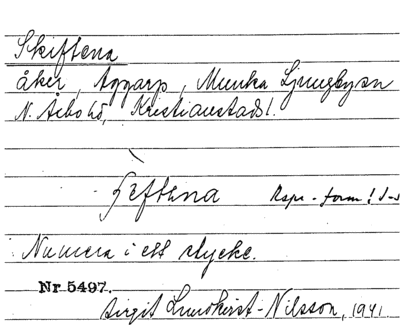 Skiftena
åker, Aggarp, Munka Ljungby sn
N. Åsbo hd, Kristianstads l.
Rspr.-form!
Numera i ett stycke.
Nr. 5497.
Birgit Lundkvist-Nilsson, 1941.